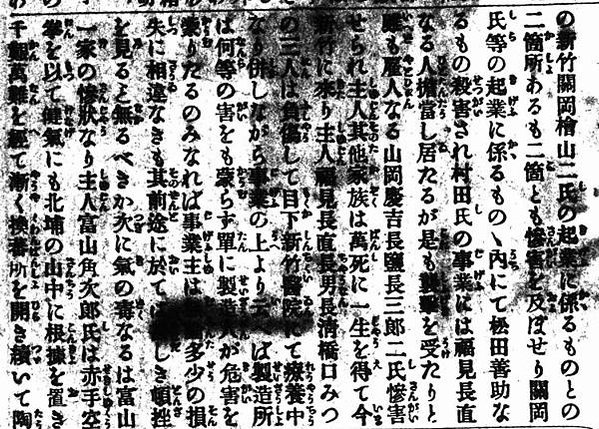 の新竹關岡檜山二氏の起業に係るものとの
二箇所あるも二箇とも慘害を及ぼせり關岡
氏等の起業に係るものゝ內にて松田善助な
るもの殺害され村田氏の事業には福見長直
なる人擔當し居たるが是も襲擊を受たりと
雖も雇人なる山岡慶吉長鹽長三郎二氏慘害
せられ主人其他家族は萬死に一生を得て今
新竹に來り主人福見長直長男長淸橋口みつ
の三人は負傷して目下新竹醫院にて療養中
なり併しながら事業の上より云へば製造所
は何等の害をも蒙らず單に製造人が危害を
蒙りたるのみなれば事業主は多少の損
失に相違なきも其前途に於ては しき頓挫
を見ると無るべきか次に氣の毒なるは富山
一家の慘狀なり主人富山角次郞氏は赤手空
拳を以て健氣にも北埔の山中に根據を置き
千艱萬難を經て漸く換蕃所を開き續いて陶